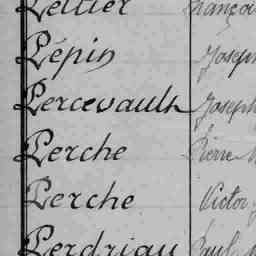 Peltier Françoi
Pépin Joseph
Percevault Joseph
Perche Pierre
Perche Victor
Perdriau Paul